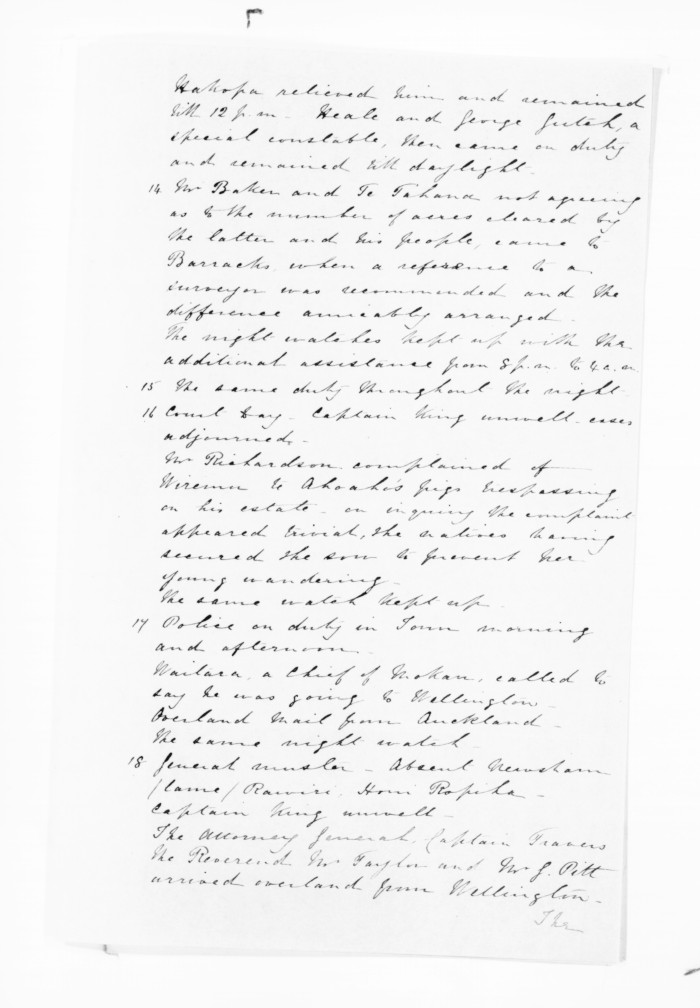 Hakopa relieved him and remained
till 12 p.m - Heale and George Gutch, a
special constable, then came on duty
and remained till daylight.
14 Mr Baker and Te Tahana not agreeing
as to the number of acres cleared by
the latter and his people, came to
Barracks when a reference to a
surveyor was recommended and the
difference amicably arranged.
The night watches kept up with the
additional assistance from 8 p.m. to 4 a.m
15 The same duty throughout the night
16 Court Day - Captain King unwell - cases
adjourned -
Mr Richardson complained of
Wiremu Te Ahoaho's pigs trespassing
on his estate - on inquiry the complaint
appeared trivial, the natives having
secured the sow to prevent her
young wandering -
The same watch kept up -
17 Police on duty in Town morning
and afternoon -
Waitara, a Chief of Mokau, called to
say he was going to Wellington -
Overland Mail from Auckland -
The same night watch -
18 General muster - Absent Newsham
/lame/ Rawiri, Honi Ropiha -
Captain King unwell -
The Attorney General, Captain Travers
the Reverend Mr Taylor and Mr G. Pitt
arrived overland from Wellington -
The